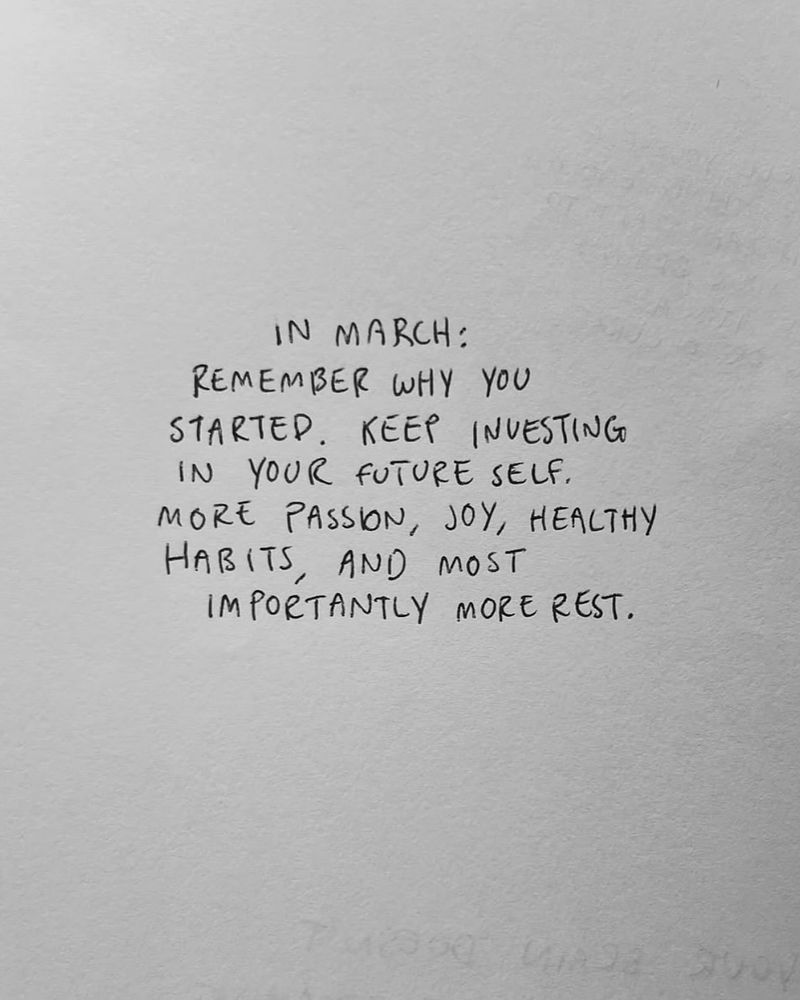 IN MARCH:
REMEMBER WHY YOU
STARTED. KEEP INVESTING
IN YOUR FUTURE SELF.
MORE PASSION, JOY, HEALTHY
HABITS, AND MOST
IMPORTANTLY MORE REST.
YOUR BRAIN DOESN'T